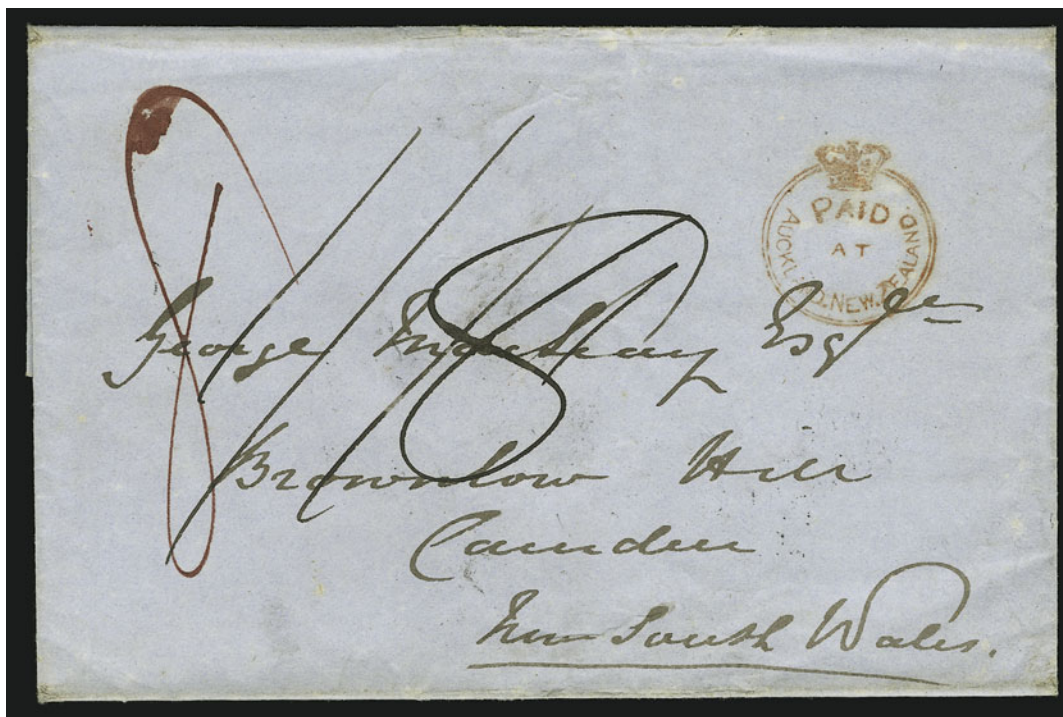 PAID
AT
AUCKLAND. NEW. ZEALAND
8
1/8
George Macleay Esqre
Brownlow Hill
Camden
New South Wales.